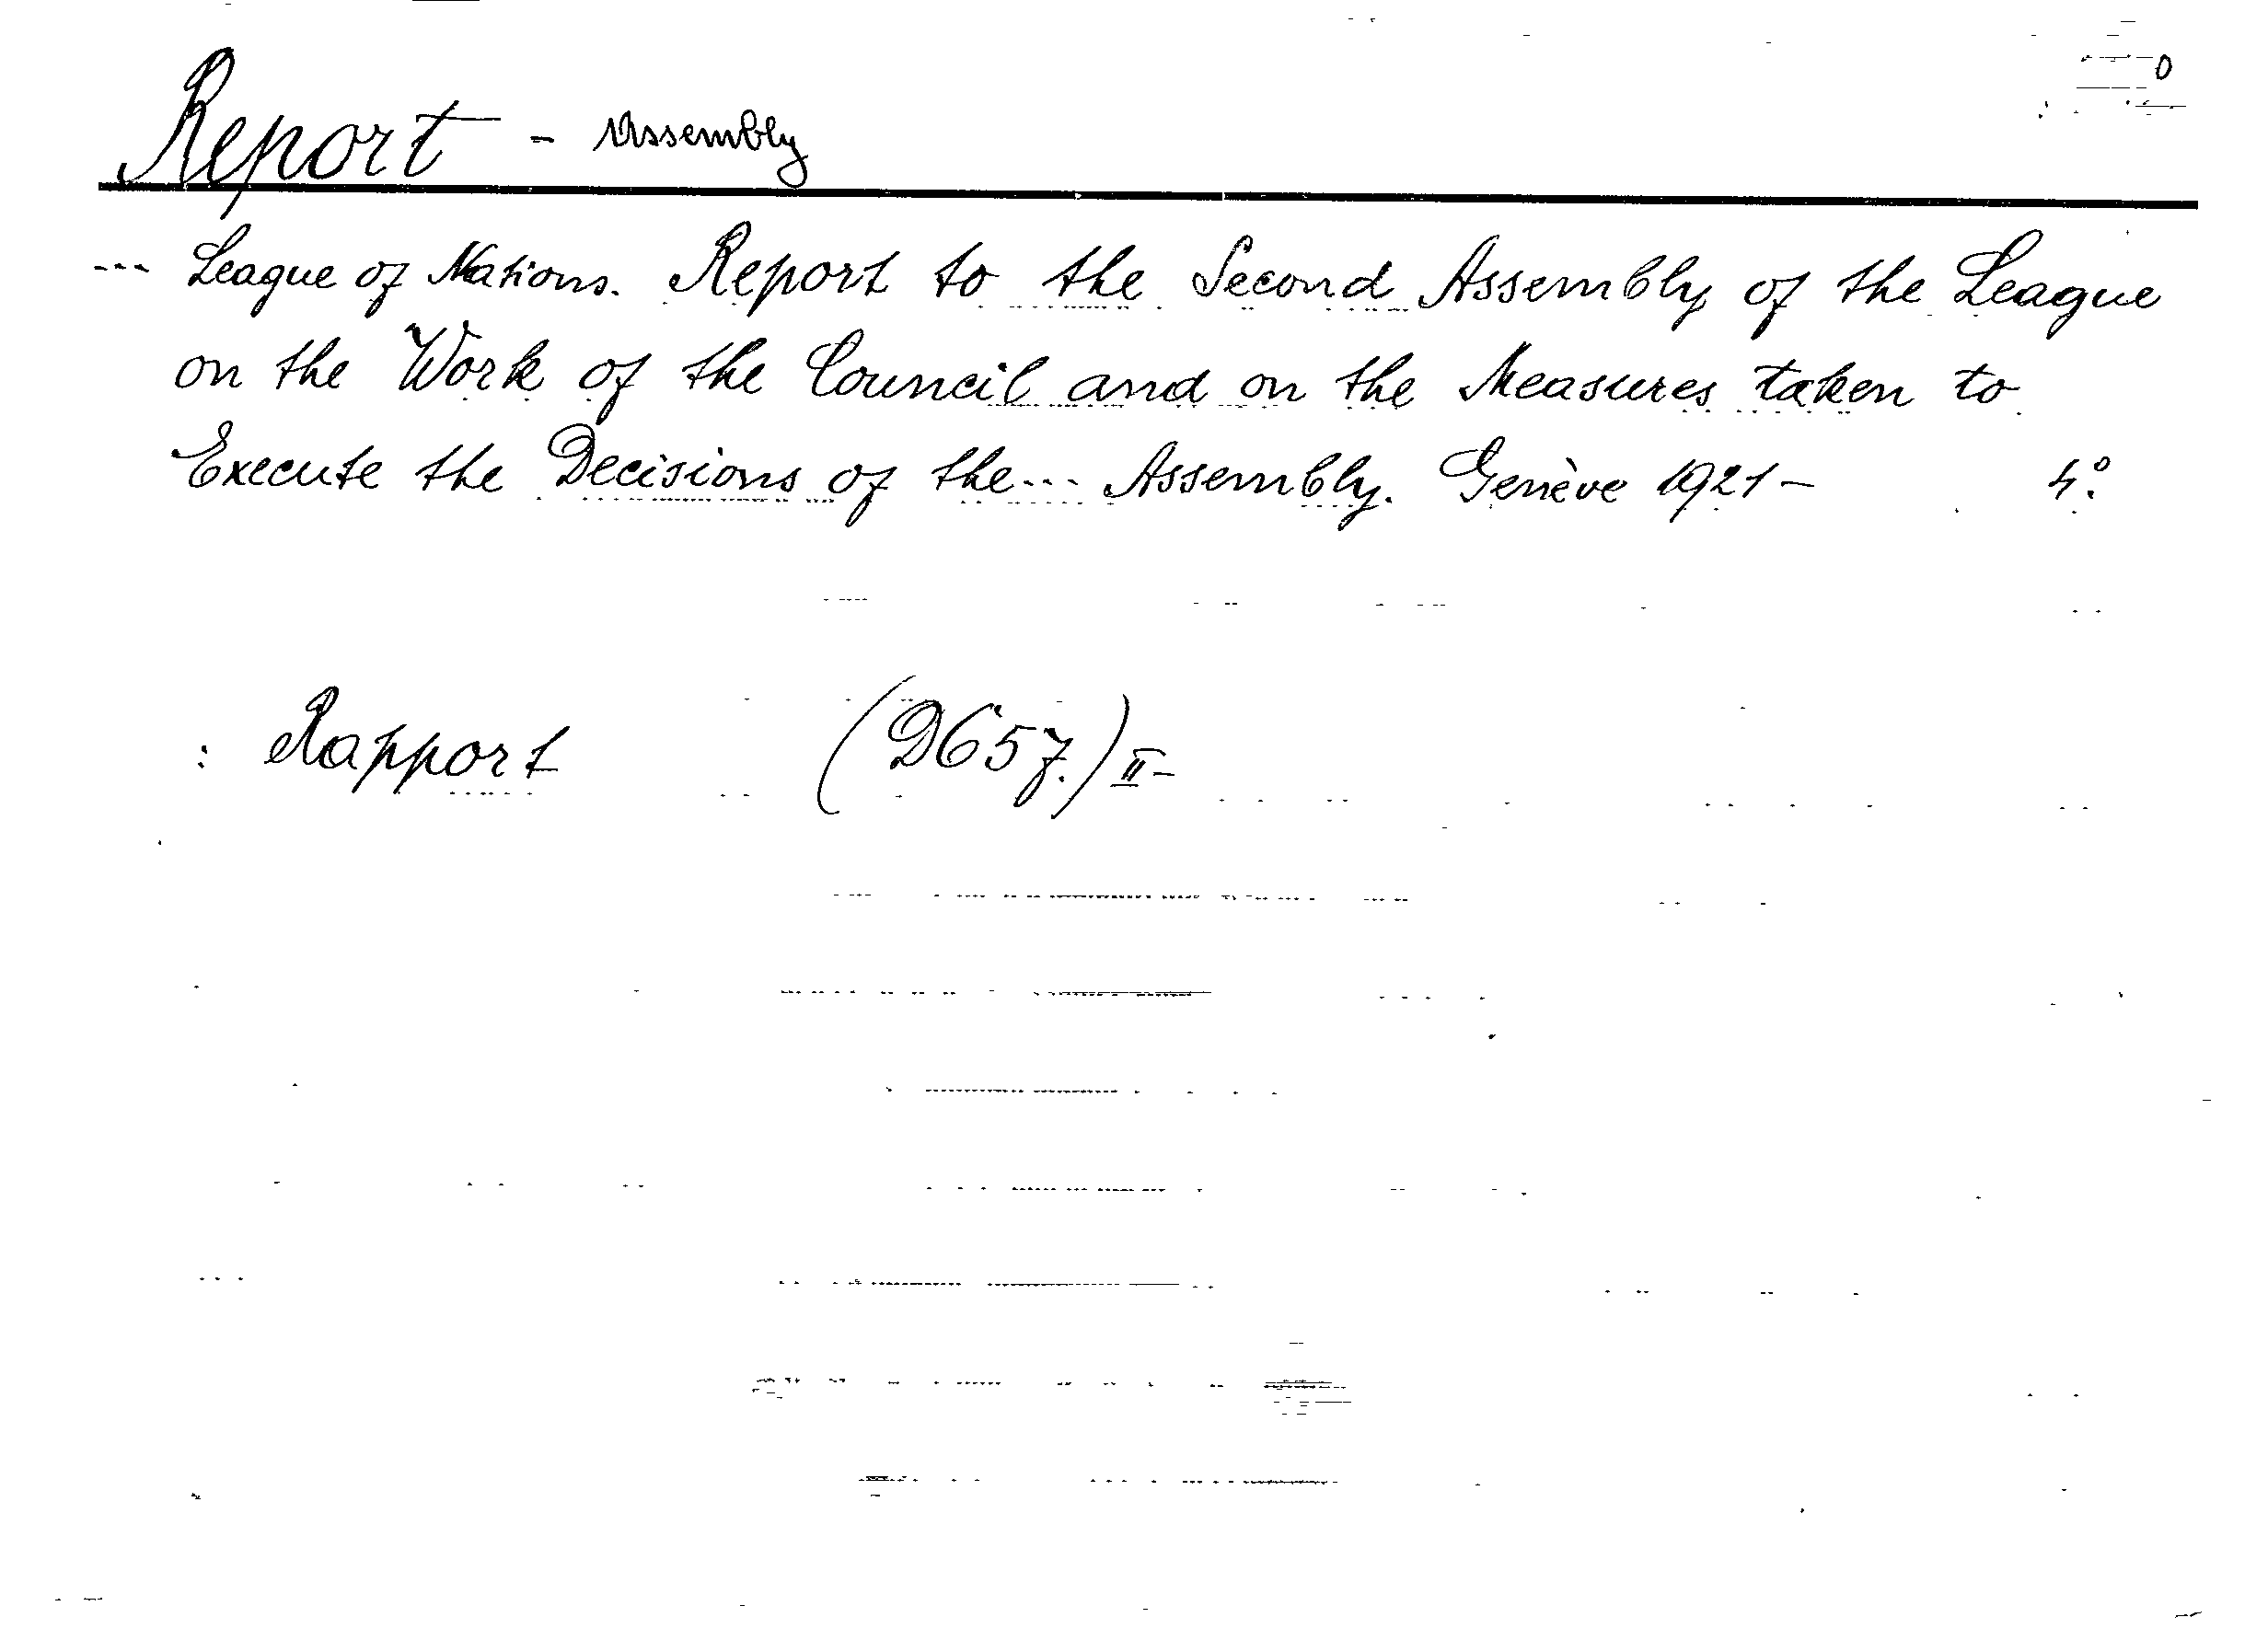 Report - Assembly
--- League of Nations. Report to the Second Assembly of the League
on the Work of the Council and on the Measures taken to
Execute the Decisions of the... Assembly. Genève 1921 - 4°.
: Rapport (D657.) II-